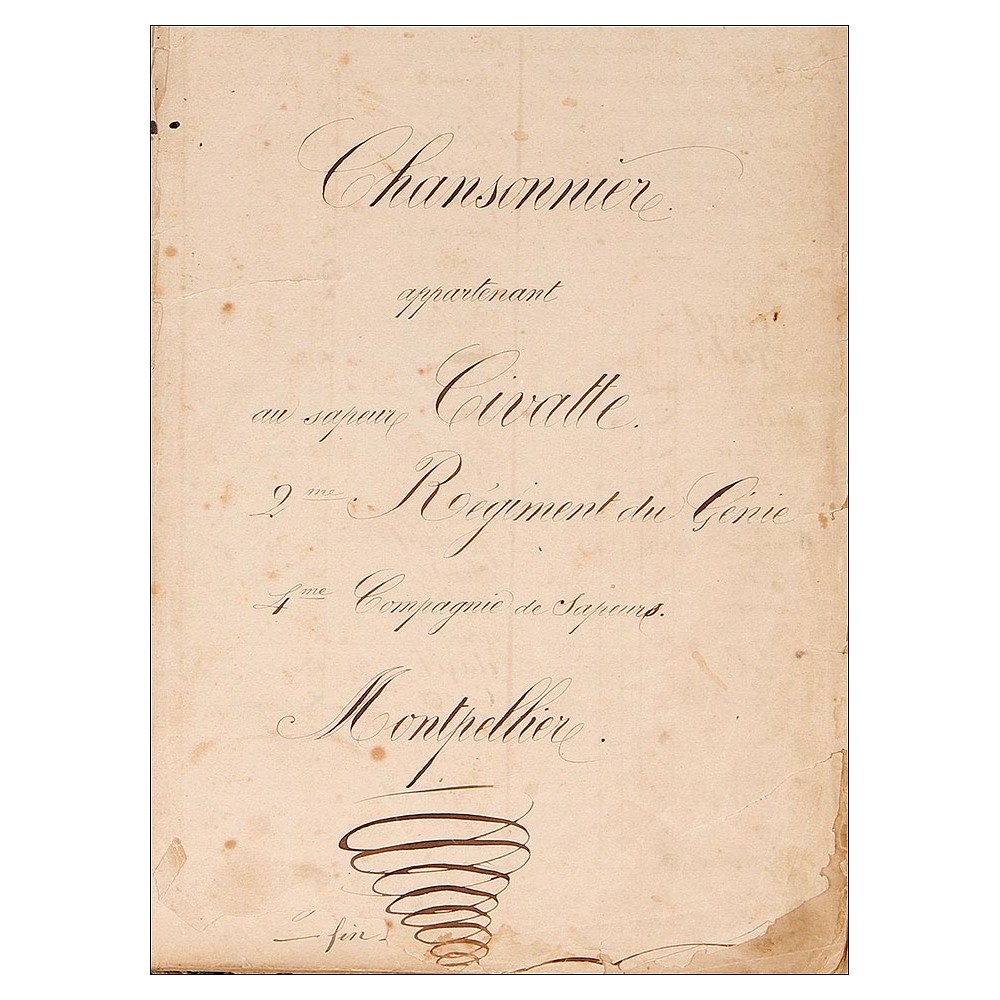 Chansonnier.
appartenant
au sapeur Civatte.
2me. Régiment du Génie
4me Compagnie de Sapeurs.
Montpellier.
fin.